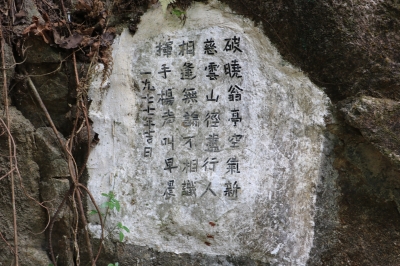 破曉翁亭空氣新
慈雲山徑盡行人
相逢無論不相識
揮手揚聲叫早晨
一九八七年吉日